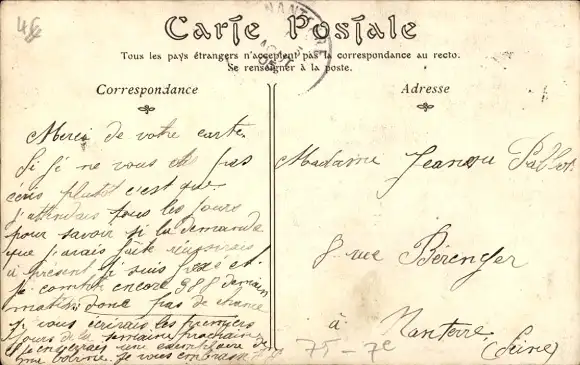 Carte Postale
Tous les pays étrangers n'acceptent pas la correspondance au recto.
Se renseigner à la poste.
Correspondance
Adresse
Merci de votre carte
Si je ne vous ai pas
écris plutôt c'est que
j'attendais tous les jours
pour savoir si la demande
que j'avais faite
à present je suis fixé et
je compte encore 988 demain
matin donc pas de
Je vous écrirais les premiers
jours de la semaine prochaine
une
Je vous embrasse
Madame Jeanne
8 rue Bérenger
à Nanterre
(Seine)
75-7e